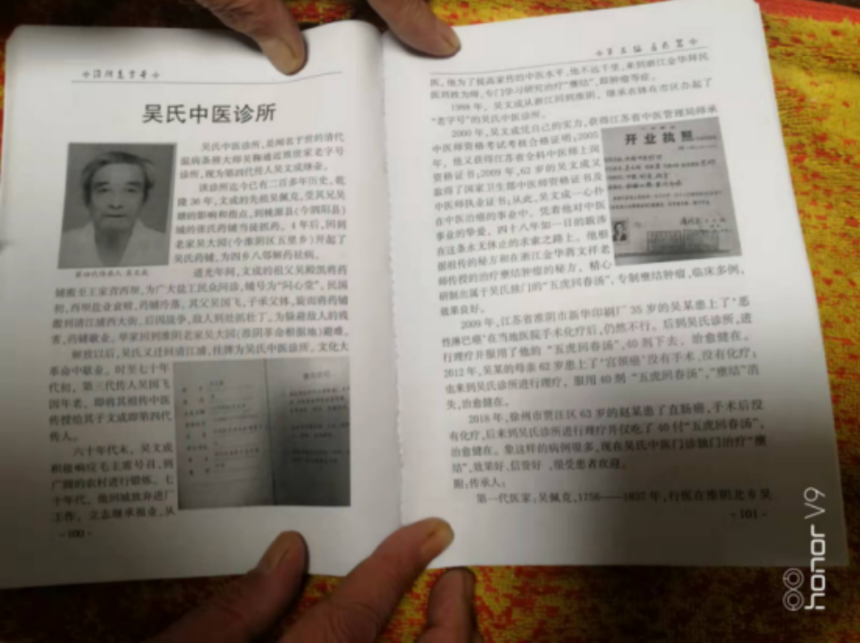 吴氏中医诊所
吴氏中医诊所,是闻名于世的清代
温病条辨大师吴鞠通近族世家老字号
诊所,现为第四代传人吴文成继业。
该诊所迄今已有二百多年历史,乾
隆36年,文成的先祖吴佩克,受其兄吴
瑭的影响和指点,到桃源县(今泗阳县)
城的张氏药铺当徒抓药。4年后,回到
老家吴大园(今淮阴区五里乡)开起了
吴氏药铺,为四乡八邻解药祛病。
第四代传承人 吴文成
道光年间,文成的祖父吴殿凯将药
铺搬至王家营西坝,为广大盐工民众问诊,铺号为"同心堂",民国
初,西坝盐业衰败,药铺冷落,其父吴国飞,子承父体,旋而将药铺
搬到清江浦西大街。后因战争,敌人到处抓壮丁,为躲避敌人的残
害,药铺歇业。举家回到淮阴老家吴大园(淮阴革命根据地)避难。
解放以后,吴氏又迁回清江浦,挂牌为吴氏中医诊所。文化大
革命中歇业。时至七十年
代初,第三代传人吴国飞
因年老,即将其祖传中医
传授给其子文成即第四代
传人。
六十年代末,吴文成
积极响应毛主席号召,到
广阔的农村进行锻炼。七
十年代,他回城放弃进厂
工作,立志继承祖业,从
-100-
医。他为了提高家传的中医水平,他不远千里,来到浙江金华拜民
医刘胜为师,专门学习研究治疗"癥结",即肿瘤等症。
1988年,吴文成从浙江回到淮阴,继承衣钵在市区办起了
"老字号"的吴氏中医诊所。
2000年,吴文成凭自己的实力,获得江苏省中医管理局师承
中医师资格考试考核合格证明;2005
年,他又获得江苏省全科中医师上岗
资格证书;2009年,62岁的吴文成又
取得了国家卫生部中医师资格证书及
中医师执业证书;从此,吴文成一心扑
在中医治癌的事业中。凭着他对中医
事业的挚爱,四十八年如一日的跋涉
在这条永无休止的求索之路上。他根
据祖传的秘方和在浙江金华蒋文祥老
师传授的治疗癥结肿瘤的秘方,精心
研制出属于吴氏独门的"五虎回春汤",专制癥结肿瘤,临床多例,
效果良好。
开业执照
2009年,江苏省淮阴市新华印刷厂35岁的吴某患上了'恶
性淋巴癌'在当地医院手术化疗后,仍然不行。后到吴氏诊所,进
行理疗并服用了他的"五虎回春汤",40剂下去,治愈健在。
2012年,吴某的母亲62岁患上了'宫颈癌'没有手术、没有化疗;
也来到吴氏诊所进行理疗,服用40剂"五虎回春汤","癥结"消
失,治愈健在。
2018年,徐州市贾汪区63岁的赵某患了直肠癌,手术后没
有化疗,后来到吴氏诊所进行理疗并仅吃了40付"五虎回春汤",
治愈健在。象这样的病例很多,现在吴氏中医门诊独门治疗"癥
结",效果好、信誉好,很受患者欢迎。
附:传承人:
第一代医家:吴佩克,1756——1837年,行医在淮阴北乡吴
-101-
honor V9